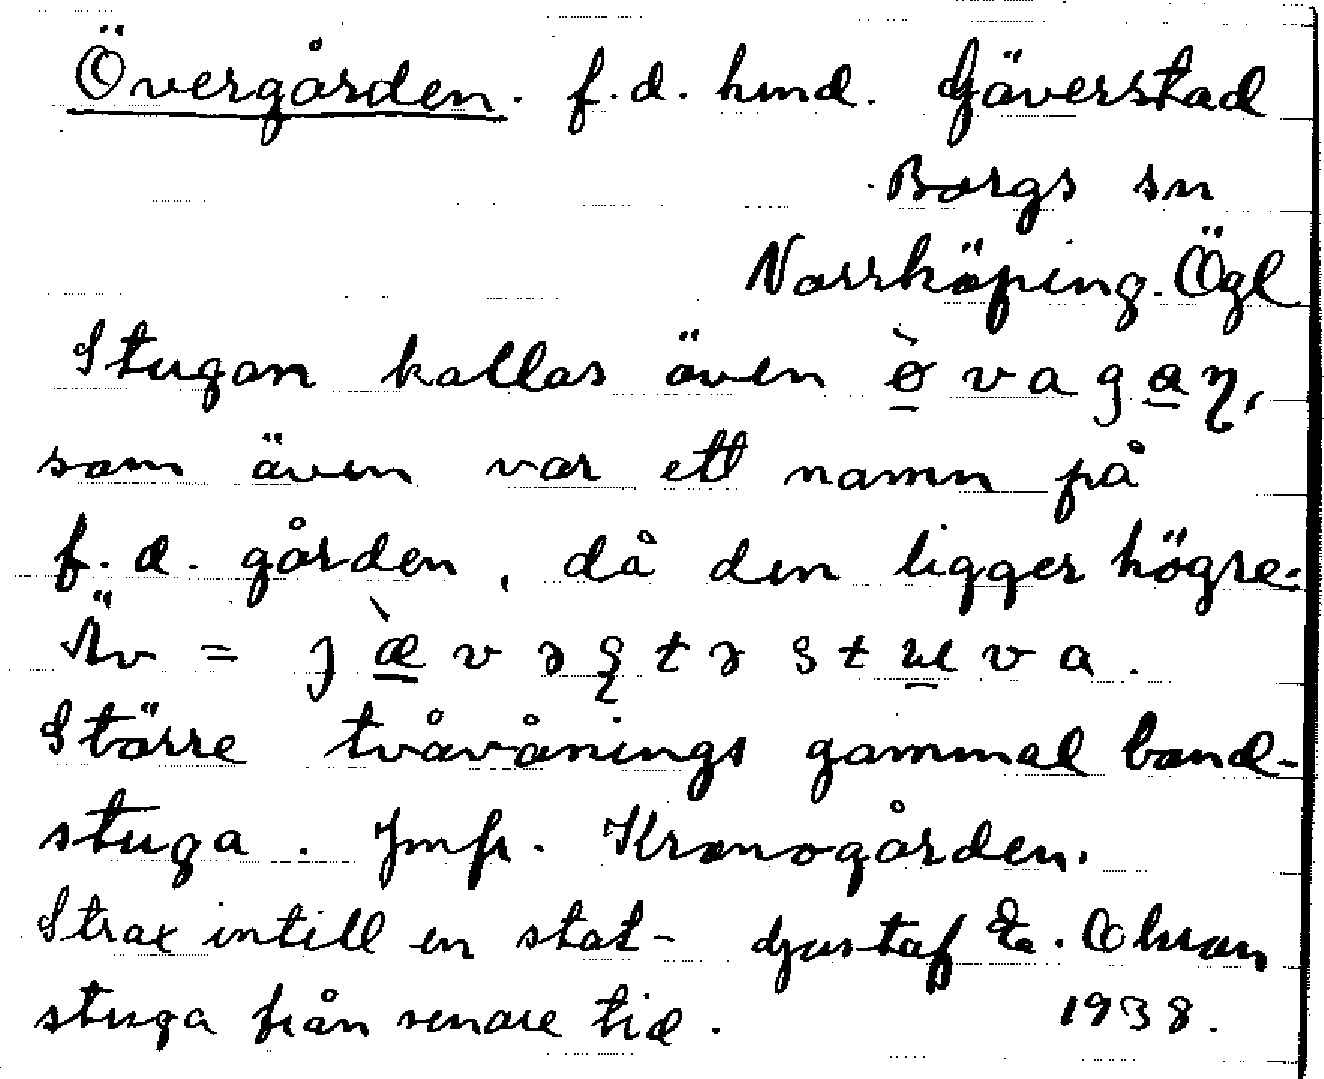 Övergården. f.d. hmd. Gäverstad
Borgs sn
Norrköping. Ögl
Stugan kallas även ø̀vagaɳ,
som även var ett namn på
f.d. gården, då den ligger högre.
Äv = jæ̀vəʂtə stuva.
Större tvåvånings gammal band-
stuga. Jmfr. Kronogården.
Strax intill en stat- Gustaf Ohson
stuga från senare tid. 1938.